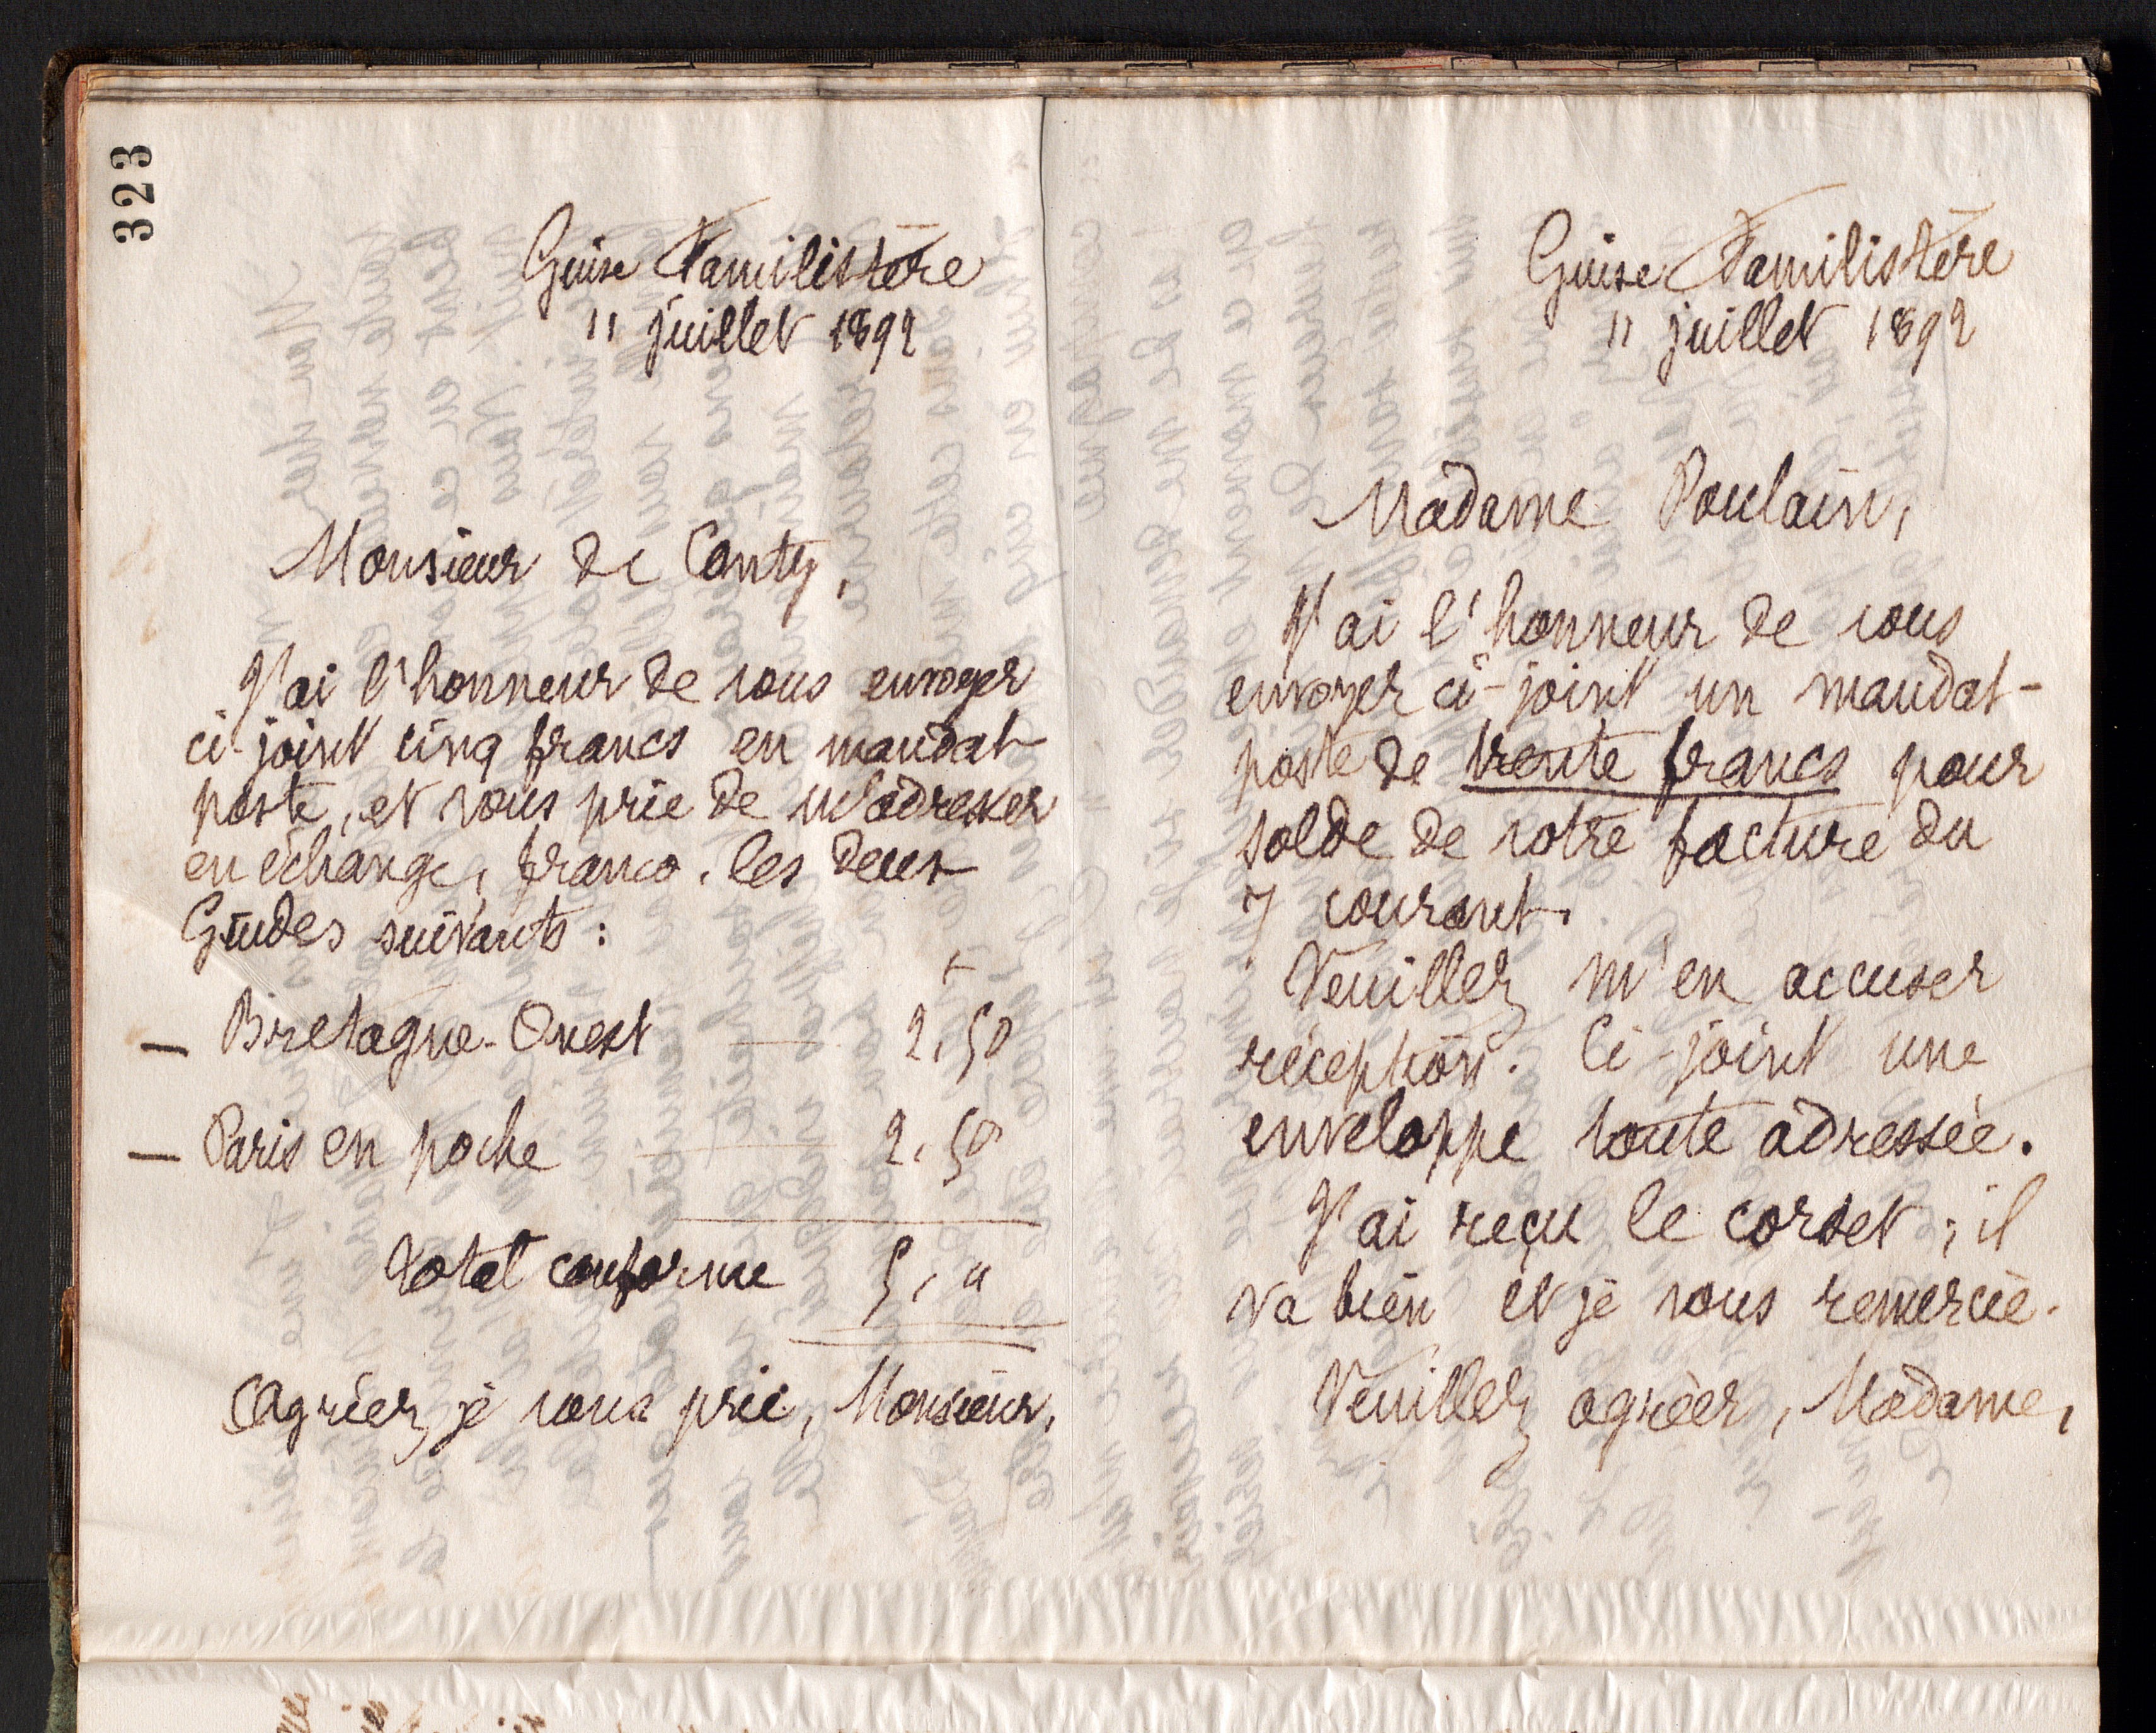 323
Guise Familistère
11 juillet 1892
Monsieur de Conty,
J'ai l'honneur de vous envoyer
ci-joint cinq francs en mandat
poste, et vous prie de m'adresser
en échange, franco, les deux
Guides suivants :
+
— Bretagne-Ouest — 2,50
— Paris en poche — 2,50
Total conforme 5, "
Agréez, je vous prie, Monsieur,
Guise Familistère
11 juillet 1892
Madame Poulain,
J'ai l'honneur de vous
envoyer ci-joint un mandat-
poste de trente francs pour
solde de votre facture du
7 courant.
Veuillez m'en accuser
réception. Ci-joint une
enveloppe toute adressée.
J'ai reçu le corset ; il
va bien et je vous remercie.
Veuillez agréer, Madame,